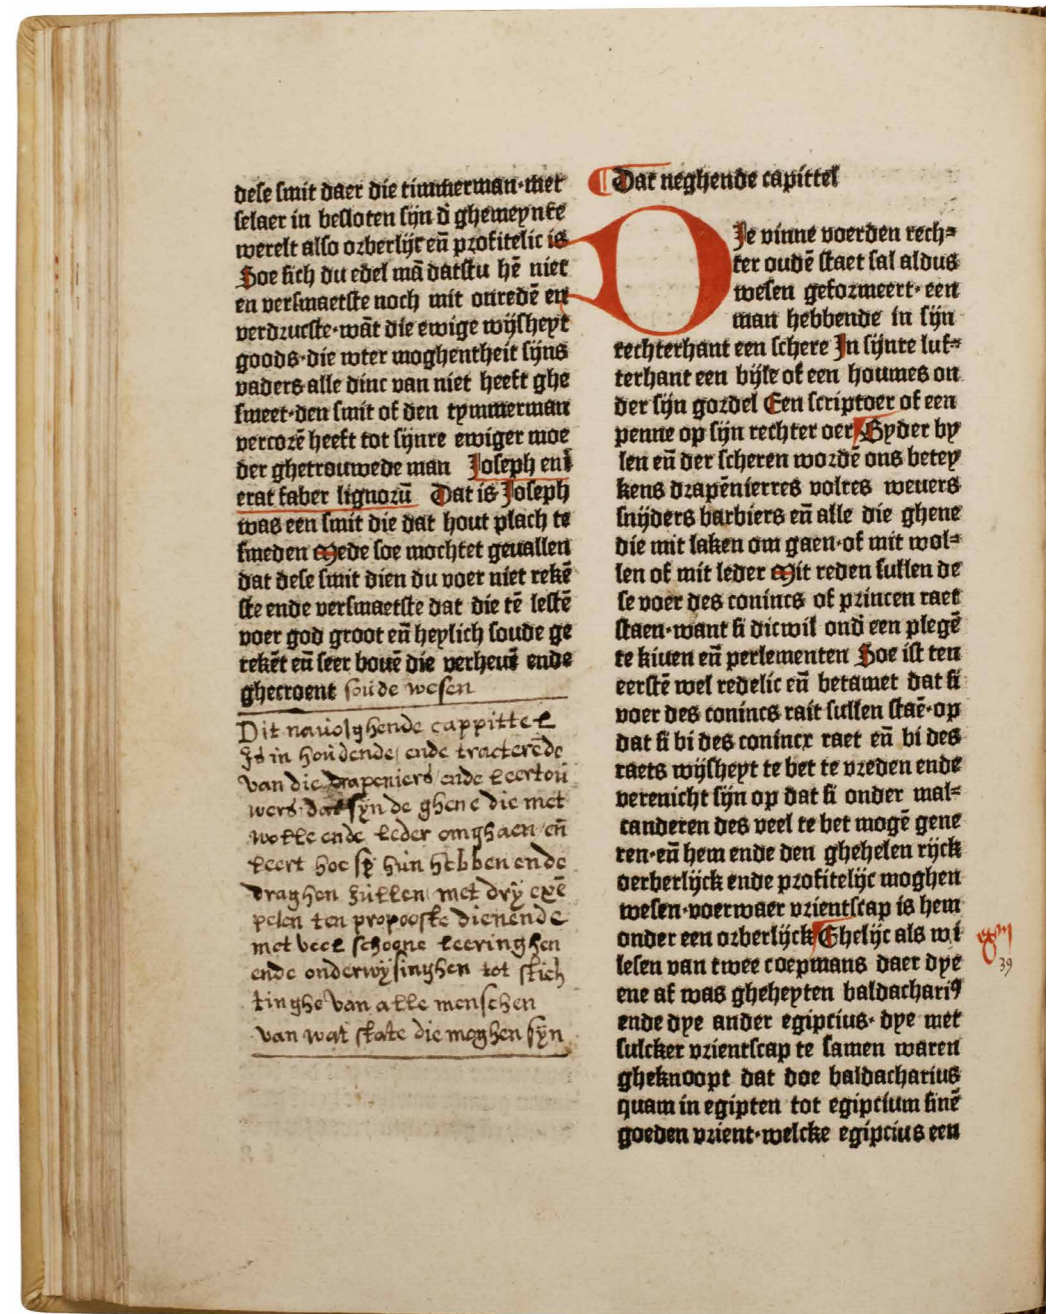 dese smit daer die timmerman·met
selaer in besloten sijn đ ghemeynte
werelt also orberlijc eñ profitelic is
Soe sich du edel mā datstu hē niet
en versmaetste noch mit onredē en
verdrucste·wāt die ewige wijsheyt
goods·die wter moghentheit sijns
vaders alle dinc van niet heeft ghe
smeet·den smit of den tymmerman
vercorē heeft tot sijnre ewiger moe
der ghetrouwede man Joseph eni
erat faber lignorū Dat is Joseph
was een smit die dat hout plach te
smeden Mede soe mochtet geuallen
dat dese smit dien du voer niet rekē
ste ende versmaetste dat die tē lestē
voer god groot eñ heylich soude ge
rekēt eñ seer bouē die verheuē ende
ghecroent soude wesen
Dit navolghende cappittel
Is in houdende ende tracterēde
van die drapeniers ende leertou
wers dat sÿn de ghene die met
wolle ende leder omghaen eñ
leert hoe sÿ hun hebben ende
draghen zullen met drÿ exē
pelen ten propooste dienende
met veel schoone leeringhen
ende onderwÿsinghen tot stich
tinghe van alle menschen
van wat state die moghen sÿn
Dat neghende capittel
DJe vinne voerden rech=
ter oudē staet sal aldus
wesen geformeert· een
man hebbende in sijn
rechterhant een schere Jn sijnre luf=
terhant een bijle of een houmes on
der sijn gordel Een scriptoer of een
penne op sijn rechter oer Byder by
len eñ der scheren wordē ons betey
kens drapēnierres volres weuers
snijders barbiers eñ alle die ghene
die mit laken om gaen·of mit wol=
len of mit leder Mit reden sullen de
se voer des conincs of princen raet
staen·want si dicwil onđ een plegē
te kiuen eñ perlementen Soe ist ten
eerstē wel redelic eñ betamet dat si
voer des conincs rait sullen staē·op
dat si bi des conincx raet eñ bi des
raets wijsheyt te bet te vreden ende
verenicht sijn op dat si onder mal=
canderen des veel te bet mogē gene
ren·eñ hem ende den ghehelen rijck
oerberlijck ende profitelijc moghen
wesen·voerwaer vrientscap is hem
onder een orberlijck Ghelijc als wi
lesen van twee coepmans daer dye
ene af was gheheyten baldachariꝰ
ende dye ander egipcius· dye met
sulcker vrientscap te samen waren
gheknoopt dat doe baldacharius
quam in egipten tot egipcium sinē
goeden vrient·welcke egipcius een
39